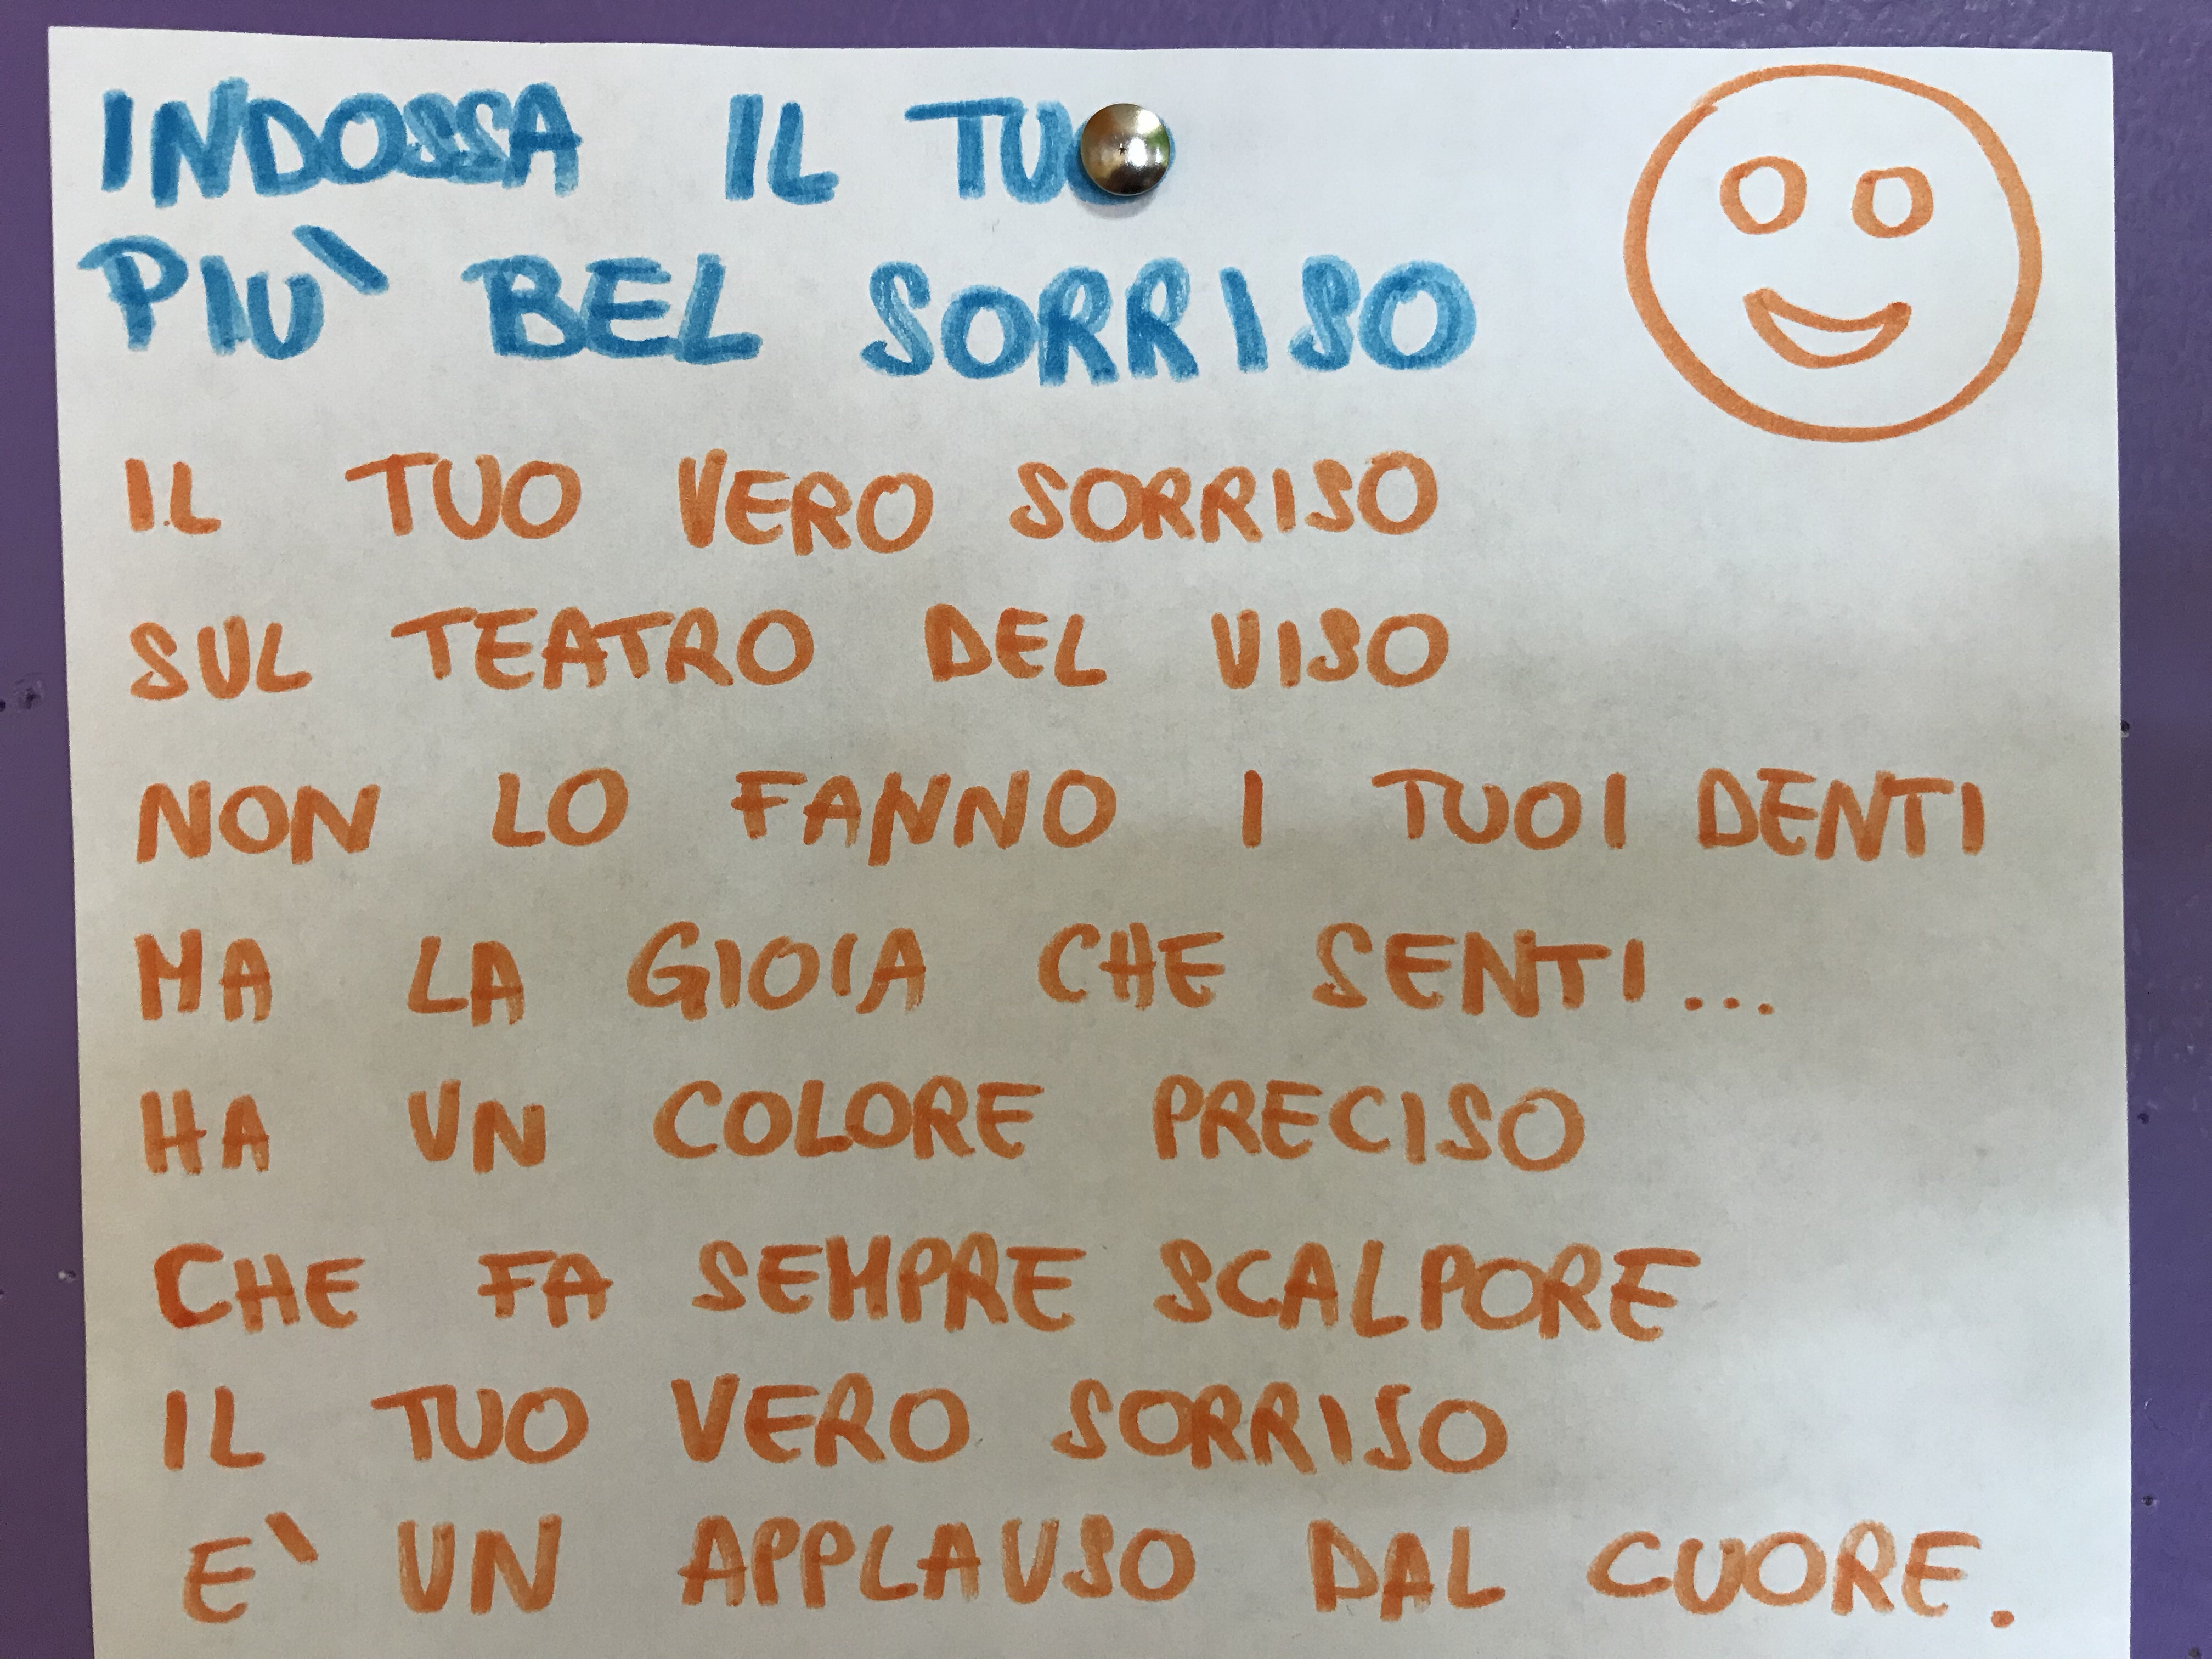 INDOSSA IL TUO
PIU' BEL SORRISO
IL TUO VERO SORRISO
SUL TEATRO DEL VISO
NON LO FANNO I TUOI DENTI
MA LA GIOIA CHE SENTI...
HA UN COLORE PRECISO
CHE FA SEMPRE SCALPORE
IL TUO VERO SORRISO
E' UN APPLAUSO DAL CUORE.